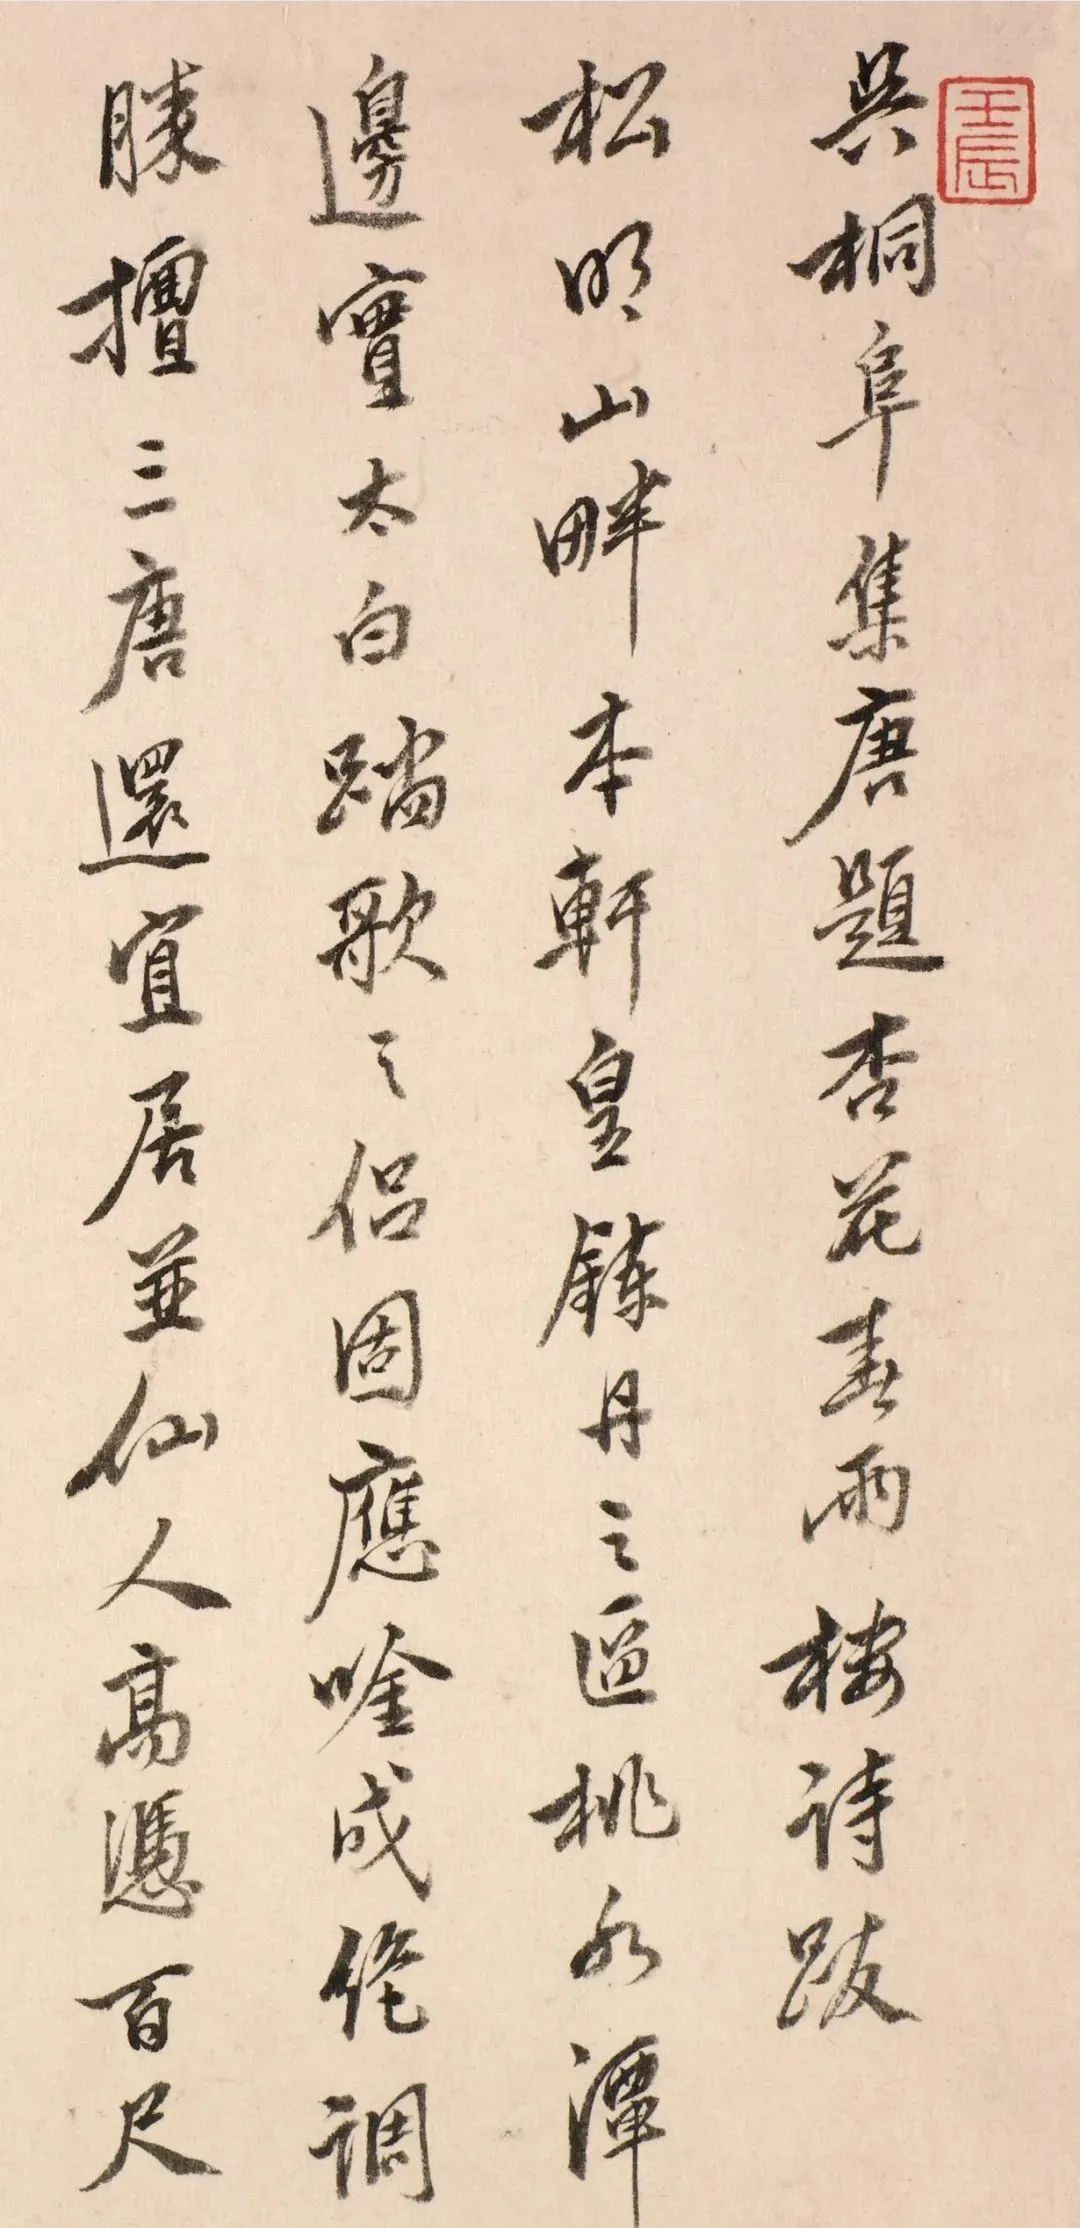 壬辰
吳桐阜集唐題杏花春雨樓詩跋
松明山畔本軒皇鍊丹之區桃水潭
邊實太白踏歌之侶固應唫成絶調
勝擅三唐還宜居並仙人高憑百尺